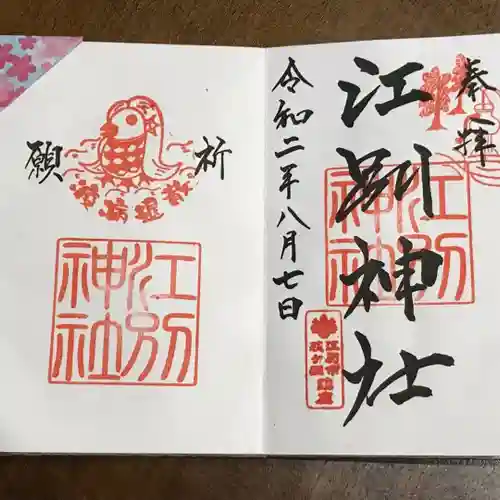 奉拝
江別神社
江別神社
令和二年八月七日
祈願
疫病退散
江別神社